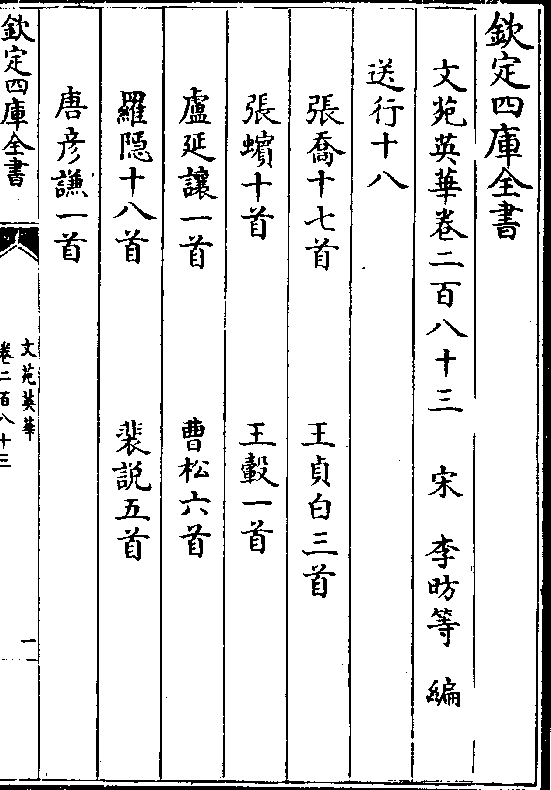 欽定四庫全書
文苑英華卷二百八十三 宋 李昉等 編
送行十八
張喬十七首 王貞白三首
張蠙十首 王轂一首
盧延讓一首 曹松六首
羅隱十八首 裴説五首
唐彦謙一首
欽定四庫全書
文苑英華
卷二百八十三
一